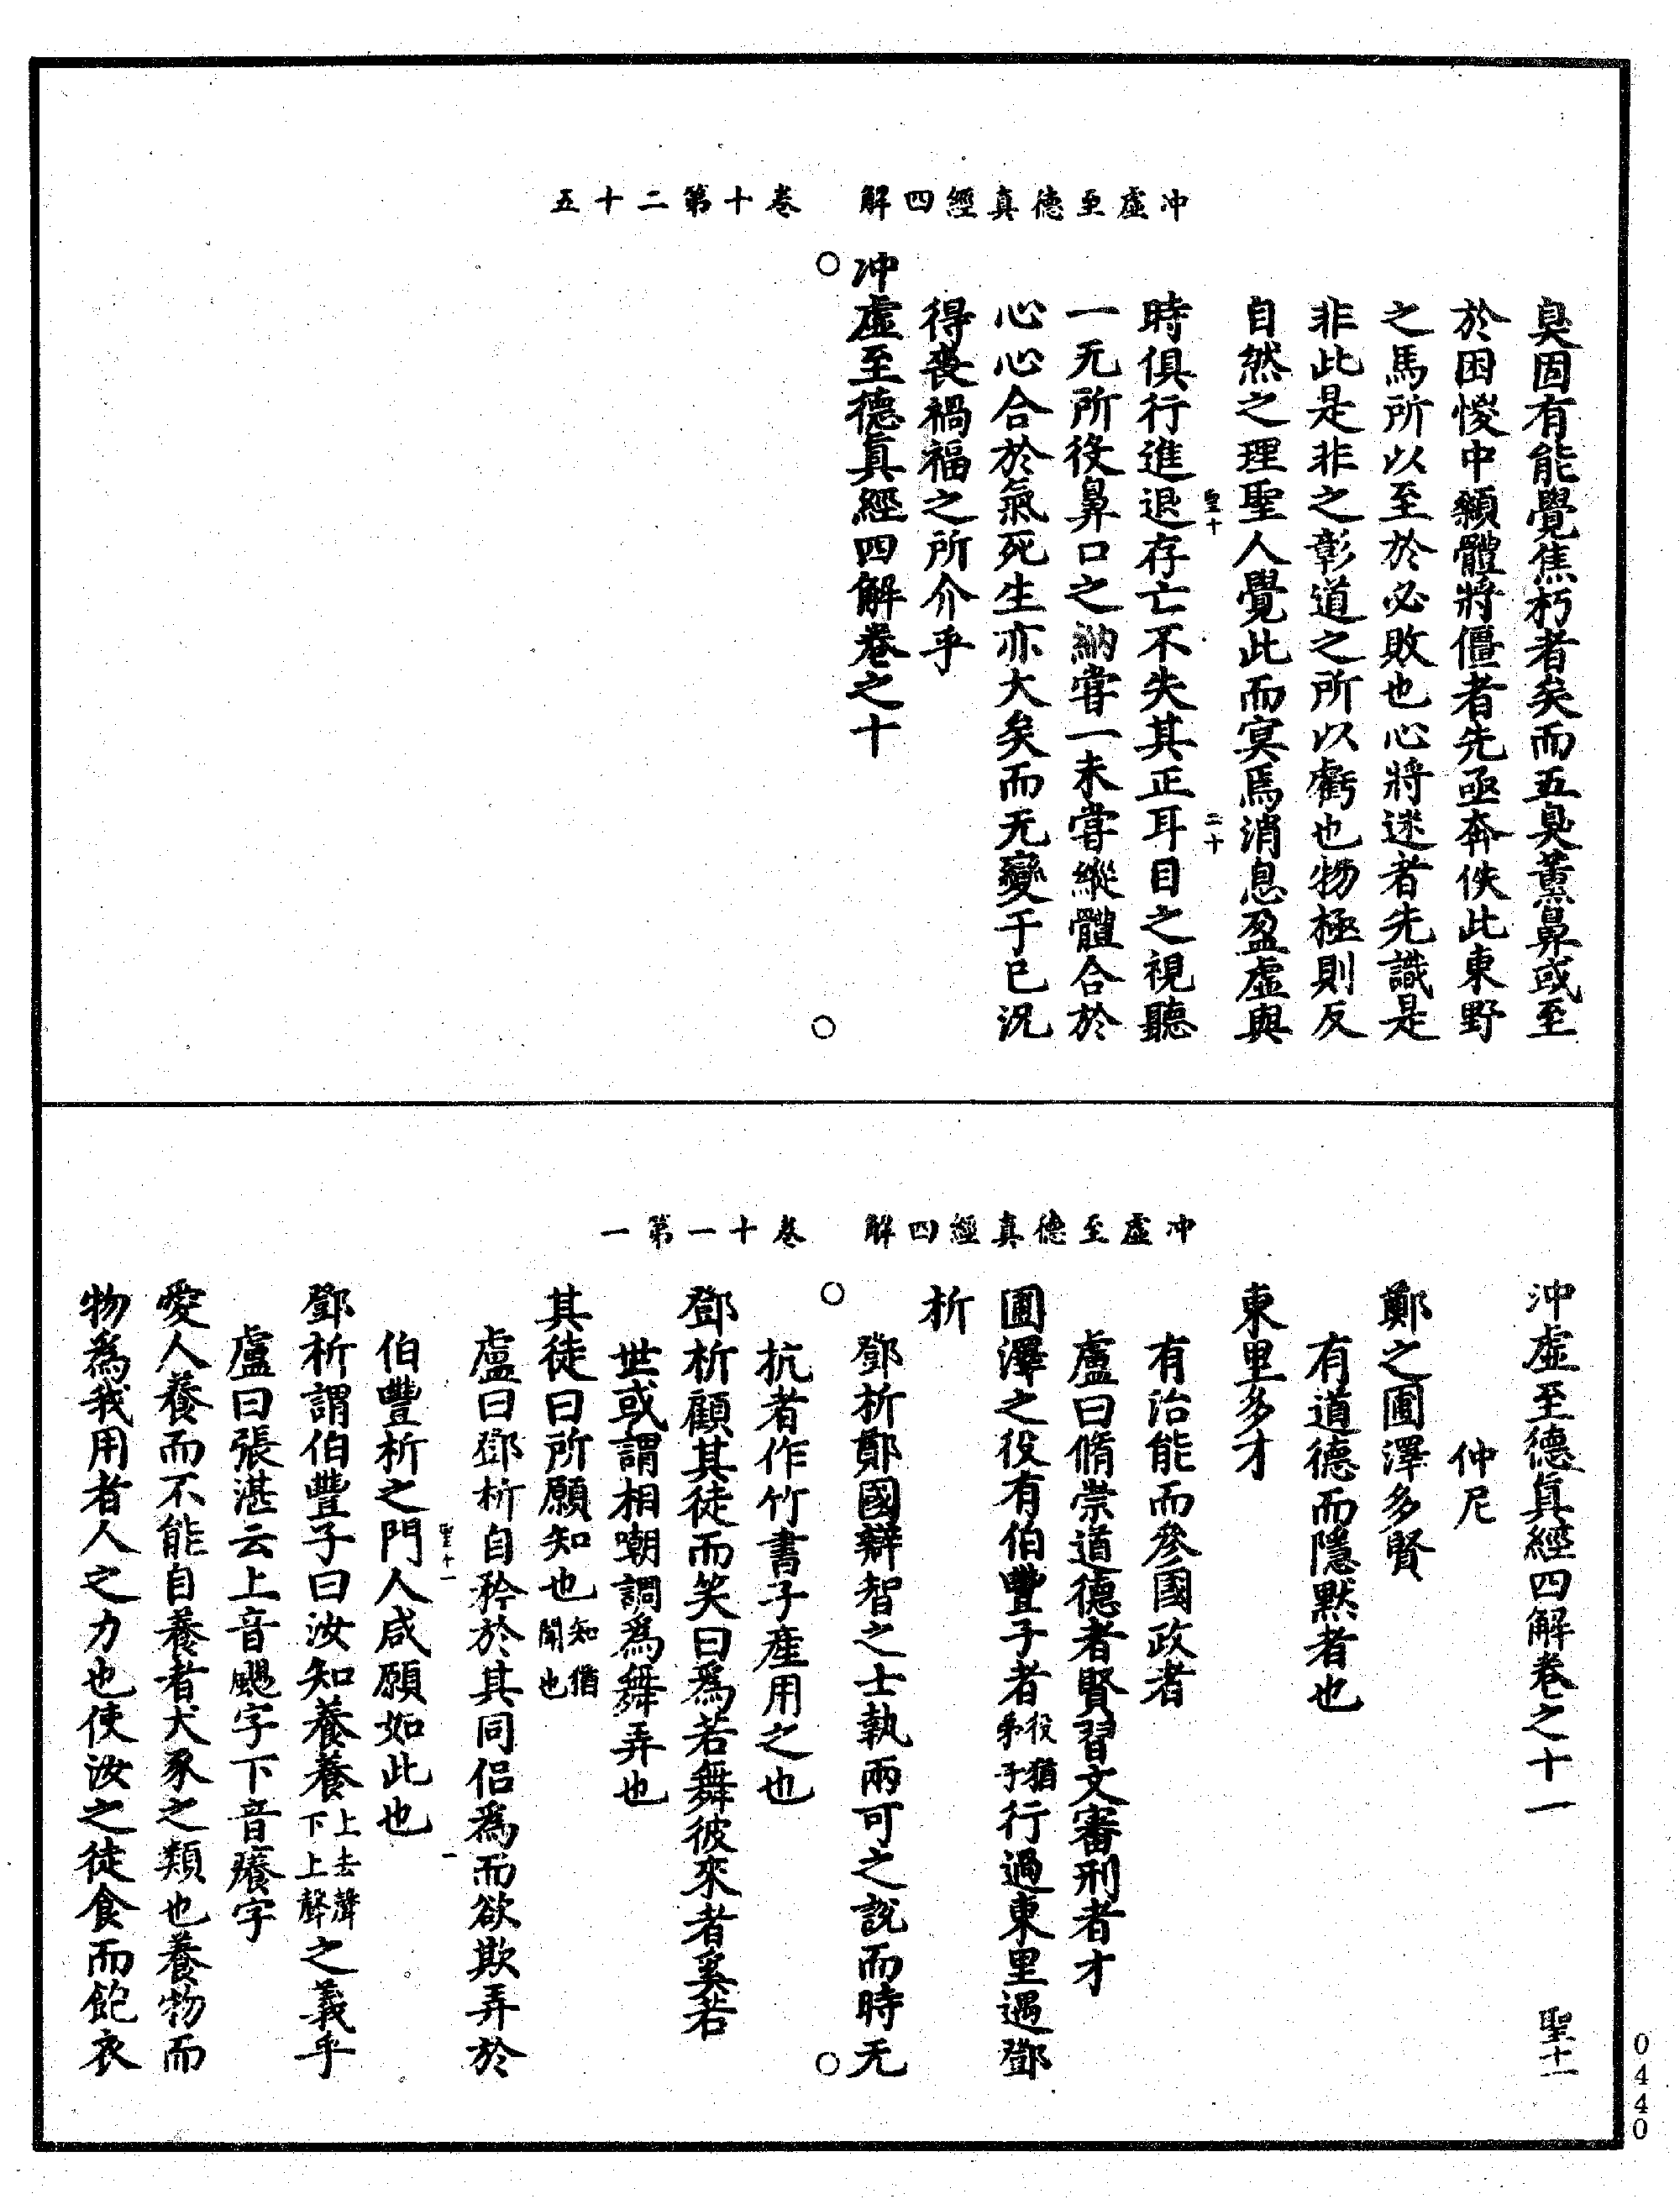 冲虛至德真經四解　卷十第二十五
臭固有能覺焦朽者矣而五臭薰鼻或至
於困惾中顙體將僵者先亟奔佚此東野
之馬所以至於必敗也心將迷者先識是
非此是非之彰道之所以虧也物極則反
自然之理聖人覺此而冥焉消息盈虛與
聖十　二十
時俱行進退存亡不失其正耳目之視聽
一无所役鼻口之納甞一未甞縱體合於
心心合於氣死生亦大矣而无變于己況
得喪禍福之所介乎
冲虛至德真經四解卷之十
冲虛至德真經四解　卷十一第一
沖虛至德真經四解卷之十一　聖十一
仲尼
鄭之圃澤多賢
有道德而隱默者也
東里多才
有治能而參國政者
盧曰脩崇道德者賢習文審刑者才
圃澤之役有伯豐子者役猶弟子行過東里遇鄧
析
鄧析鄭國辯智之士執兩可之說而時无
抗者作竹書子產用之也
鄧析顧其徒而笑曰為若舞彼來者奚若
世或謂相嘲調為舞弄也
其徒曰所願知也知猶聞也
盧曰鄧析自矜於其同侶為而欲欺弄於
聖十一　一
伯豐析之門人咸願如此也
鄧析謂伯豐子曰汝知養養上去聲下上聲之義乎
盧曰張湛云上音颺字下音癢字
愛人養而不能自養者犬豕之類也養物而
物為我用者人之力也使汝之徒食而飽衣
0440